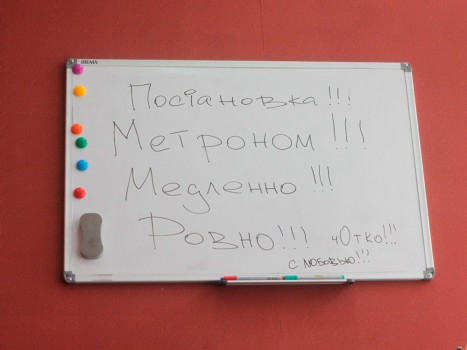 Постановка!!!
Метроном!!!
Медленно!!!
Ровно!!! чОтко!!!
с любовью!!!